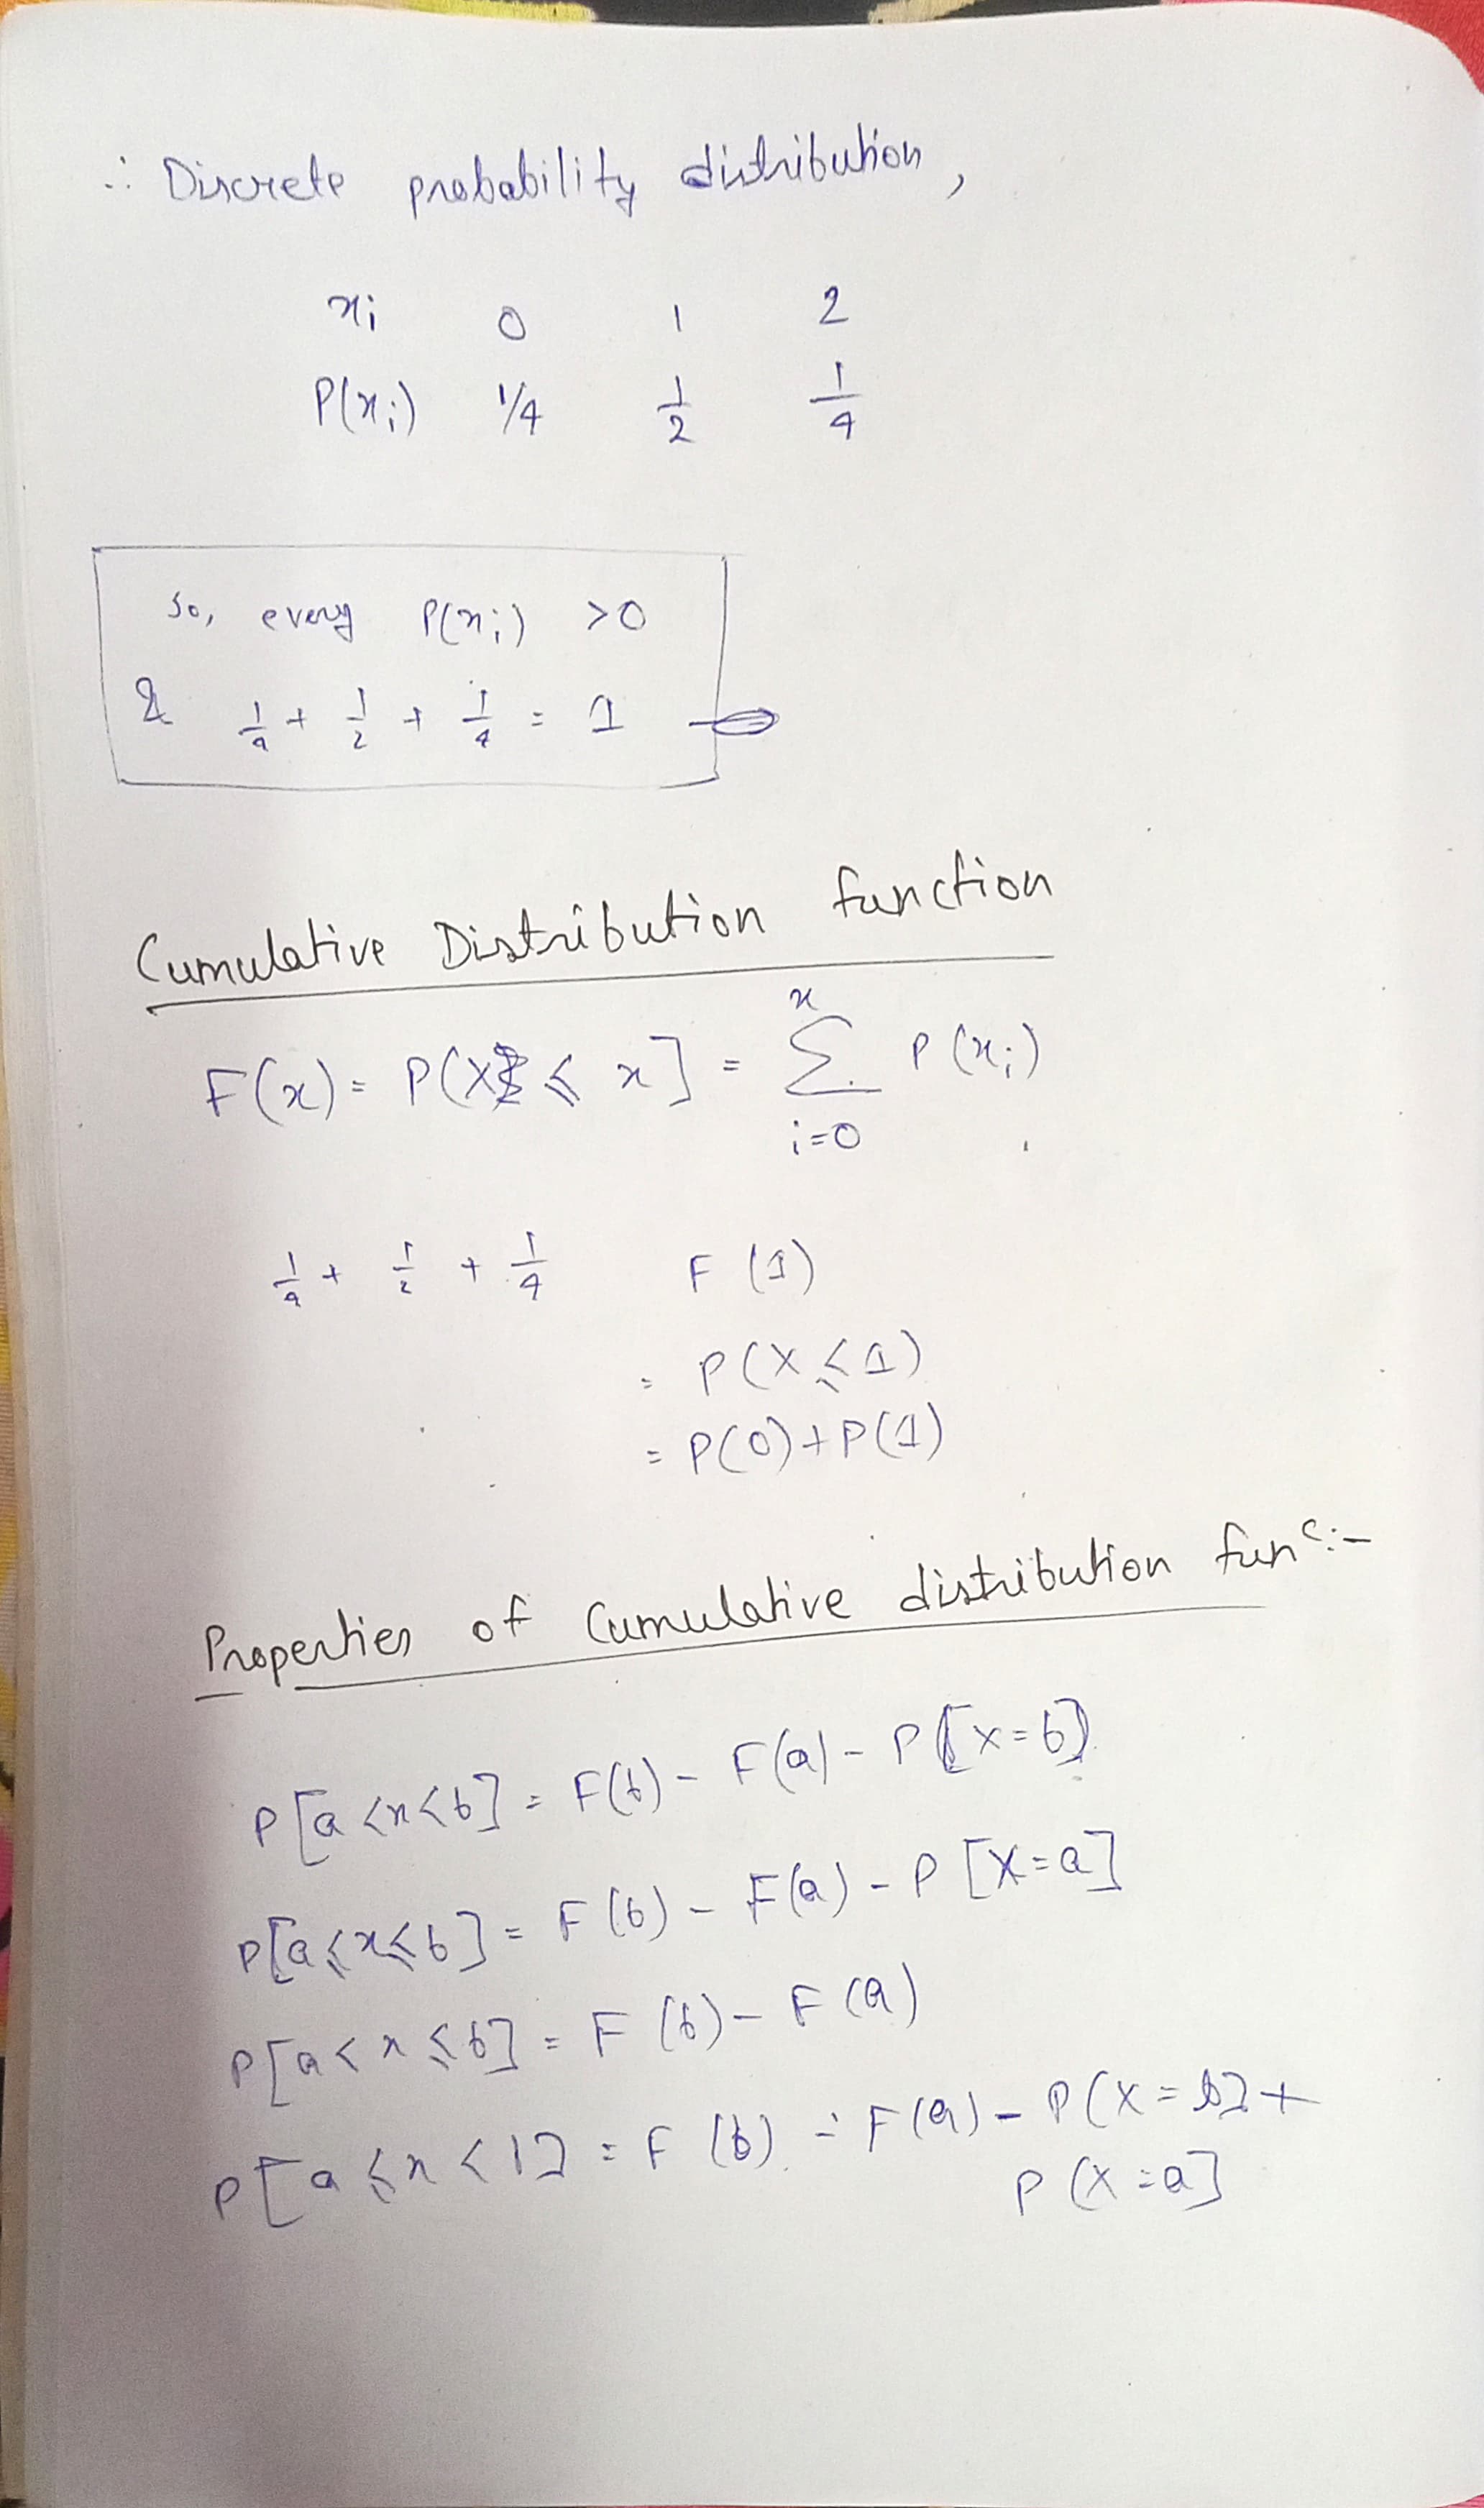 ∴ Discrete probability distribution,
xi 0 1 2
P(xi) 1/4 1/2 1/4
so, every P(xi) >0
& 1/4 + 1/2 + 1/4 = 1
Cumulative Distribution function
F(x) = P(X ≤ x] = x Σ i=0 P(xi)
1/4 + 1/2 + 1/4 F(1)
= P(X ≤ 1)
= P(0)+P(1)
Properties of Cumulative distribution func:-
P[a<x<b] = F(b) - F(a) - P[x=b]
P[a≤x≤b] = F(b) - F(a) - P[X=a]
P[a<x≤b] = F(b) - F(a)
P[a≤x<1] = F(b) - F(a) - P(X=b]+
P(X=a]